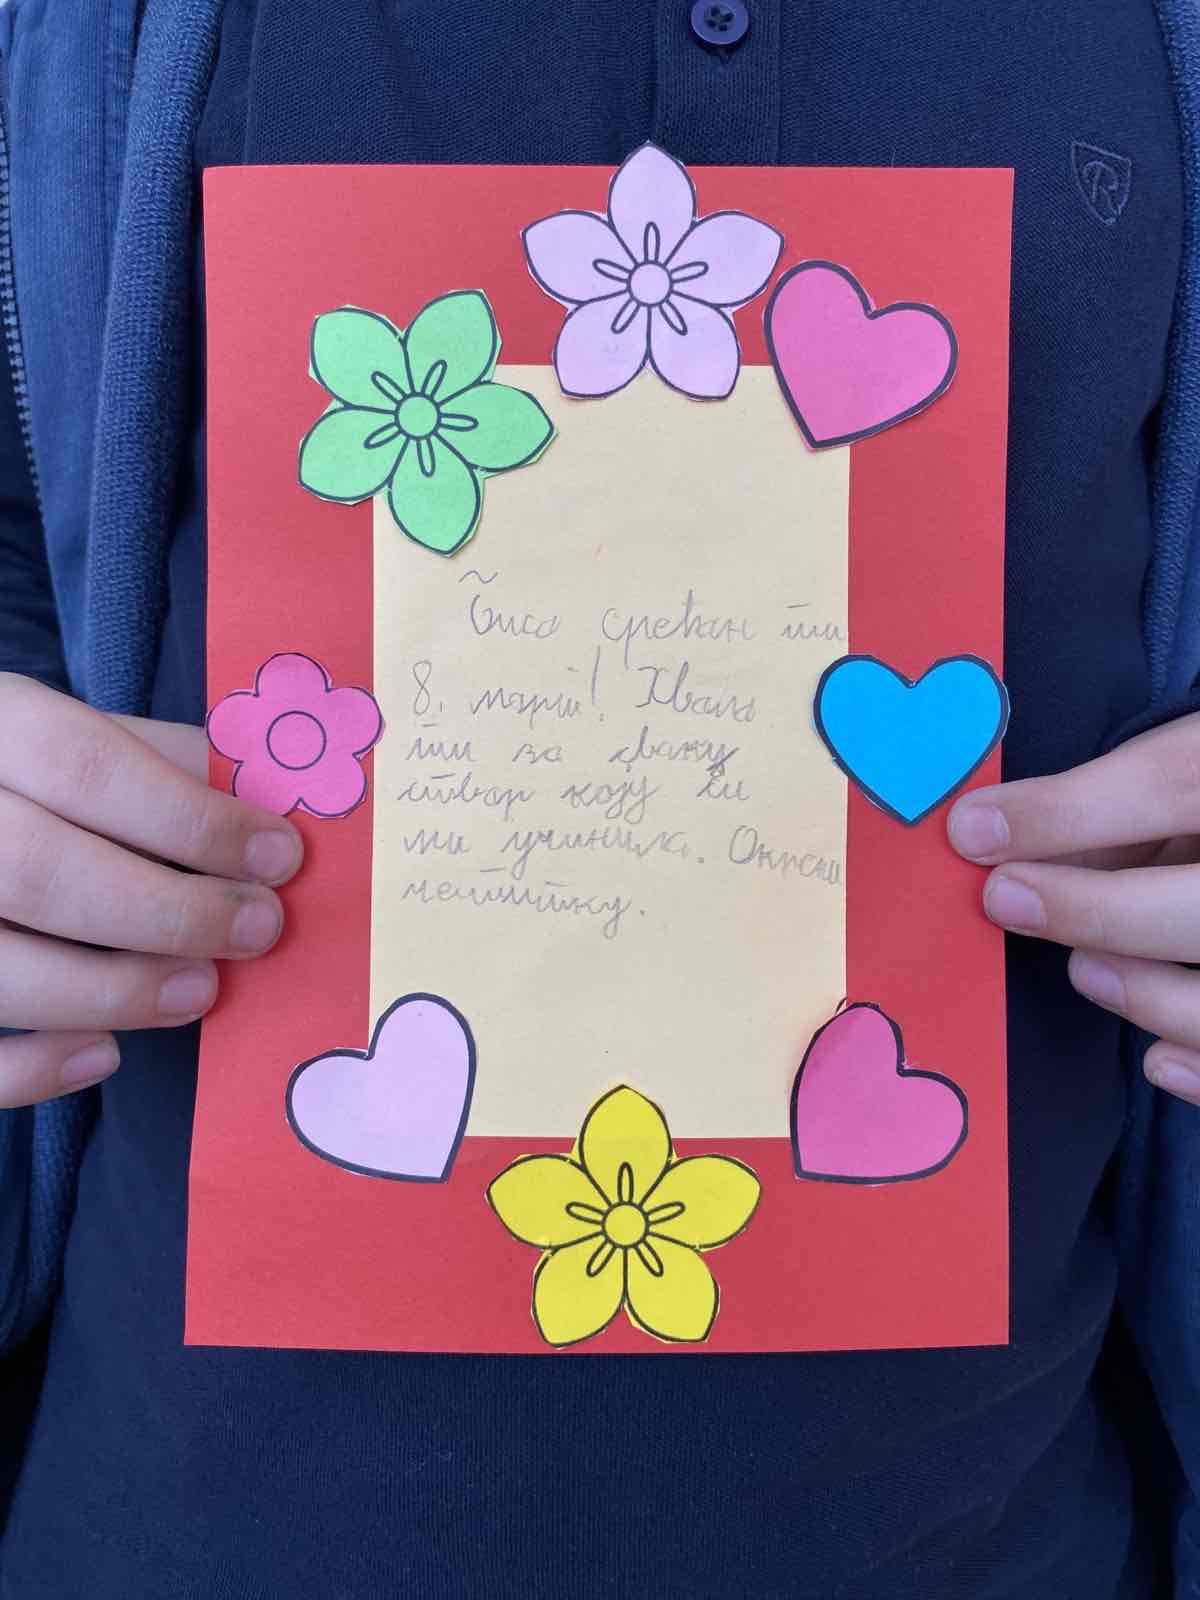 ~
срећан ти
8. март! Хвала
ти за сваку
ствар коју си
ми учинила. Окрени
честитку.
R